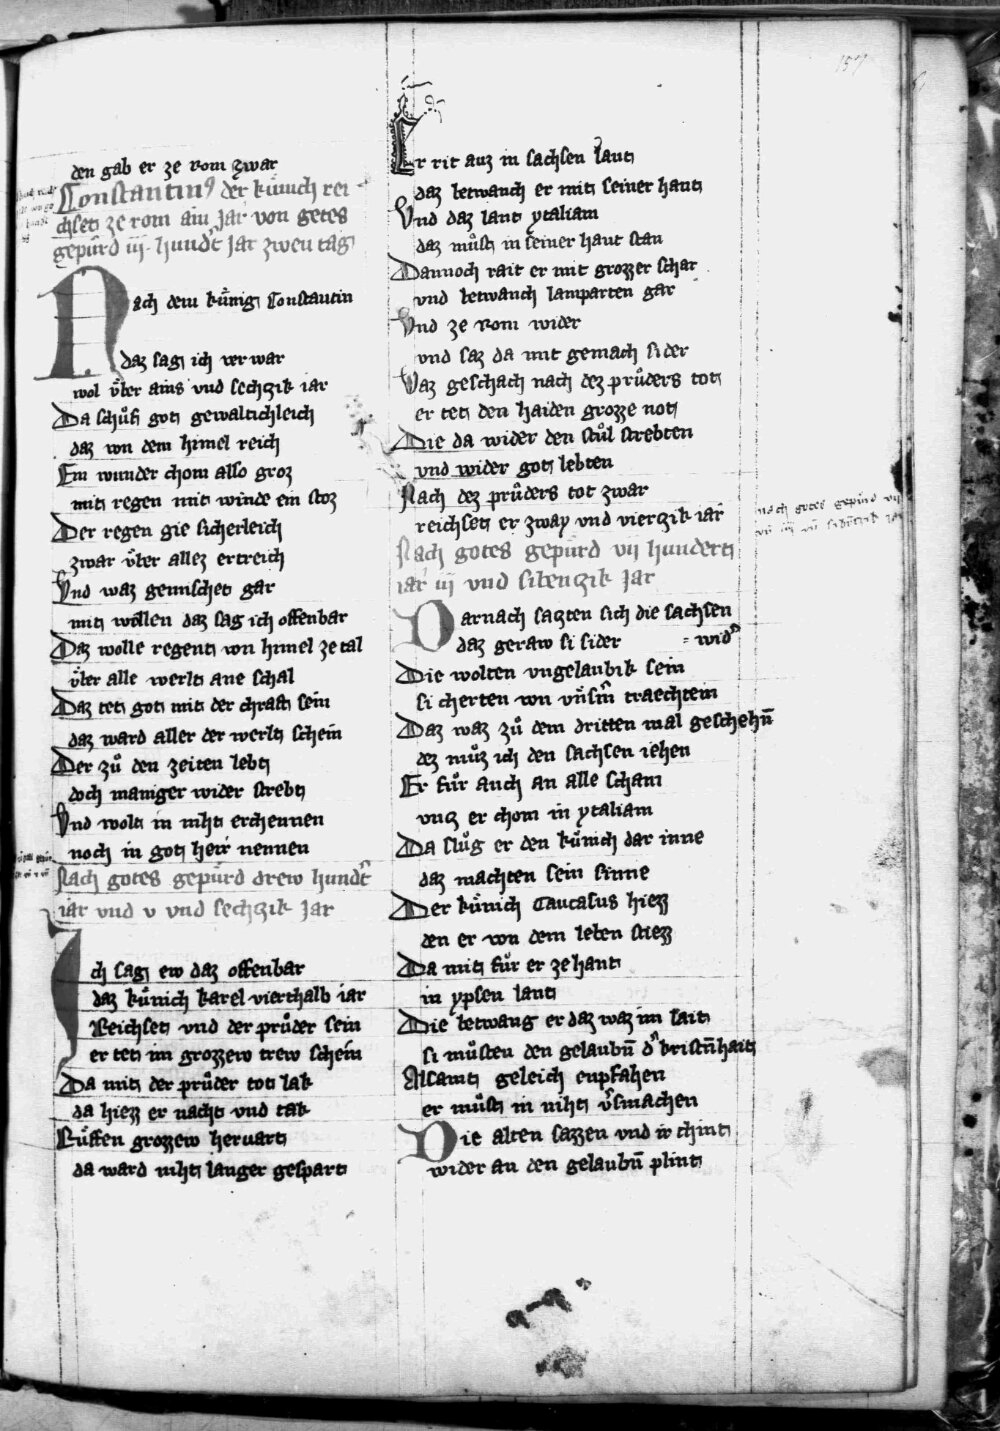 157
den gab er ze rom zwar
Constantin9 der kuͤnich rei
chset ze rom ain jar von gotes
gepuͤrd iij hundͭ jar zwen tag
Nach dem kuͤnig Constantin
daz sag ich verwar
wol vͤber ains vnd sechczik iar
Da schuͤff got gewaltichleich
daz von dem himel reich
Ein wunder chom also groz
mit regen mit winde ein stoz
Der regen gie sicherleich
zwar vͤber allez ertreich
Vnd waz gemischet gar
mit wollen daz sag ich offenbar
Daz wolle regent von himel ze tal
vͤber alle werlt ane schal
Daz tet got mit der chraft sein
daz ward aller der werlt schein
Der zuͦ den zeiten lebt
doch maniger wider strebt
Vnd wolt in niht erchennen
noch in got herr nennen
Nach gotes gepuͤrd drew hundͭ
iar vnd v vnd sechczik Jar
Ich sag ew daz offenbar
daz kuͤnich karel vierthalb iar
Reichset vnd der pruͦder sein
er tet im grozzew trew schein
Da mit der pruͦder tot lak
da hiezz er nacht vnd tak
Ruͤffen grozzew hervart
da ward niht langer gespart
Er rit auz in sachsen lant
daz betwanch er mit seiner hant
Vnd daz lant ytaliam
daz muͦst in seiner hant stan
Dannoch rait er mit grozzer schar
vnd betwanch lamparten gar
Vnd ze rom wider
vnd saz da mit gemach sider
Waz geschach nach dez pruͦders tot
er tet den haiden grozze not
Die da wider den stuͦl strebten
vnd wider got lebten
Nach dez pruͦders tot zwar
reichset er zway vnd vierczik iar
Nach gotes gepuͤrd vij hundert
iar iij vnd sibenczik Jar
Darnach sagten sich die sachsen
daz geraw si sider = widͬ
Die wolten vngelaubik sein
si cherten von vnsͬm traechtein
Daz waz zuͦ dem dritten mal geschehn̄
dez muͦz ich den sachsen iehen
Er fuͦr auch an alle scham
vncz er chom in ytaliam
Da sluͦg er den kuͤnich dar inne
daz machten sein sinne
Der kuͤnich Caucasus hiezz
den er von dem leben stiezz
Da mit fuͦr er ze hant
in ypsen lant
Die betwang er daz waz im lait
si muͦsten den gelaubn̄ dͬ kristn̄hait
Alsamt geleich enpfahen
er muͦst in niht vͬsmachen
Die alten sazzen vnd ir chint
wider an den gelaubn̄ plint
nach gotes gepuͤrd vij